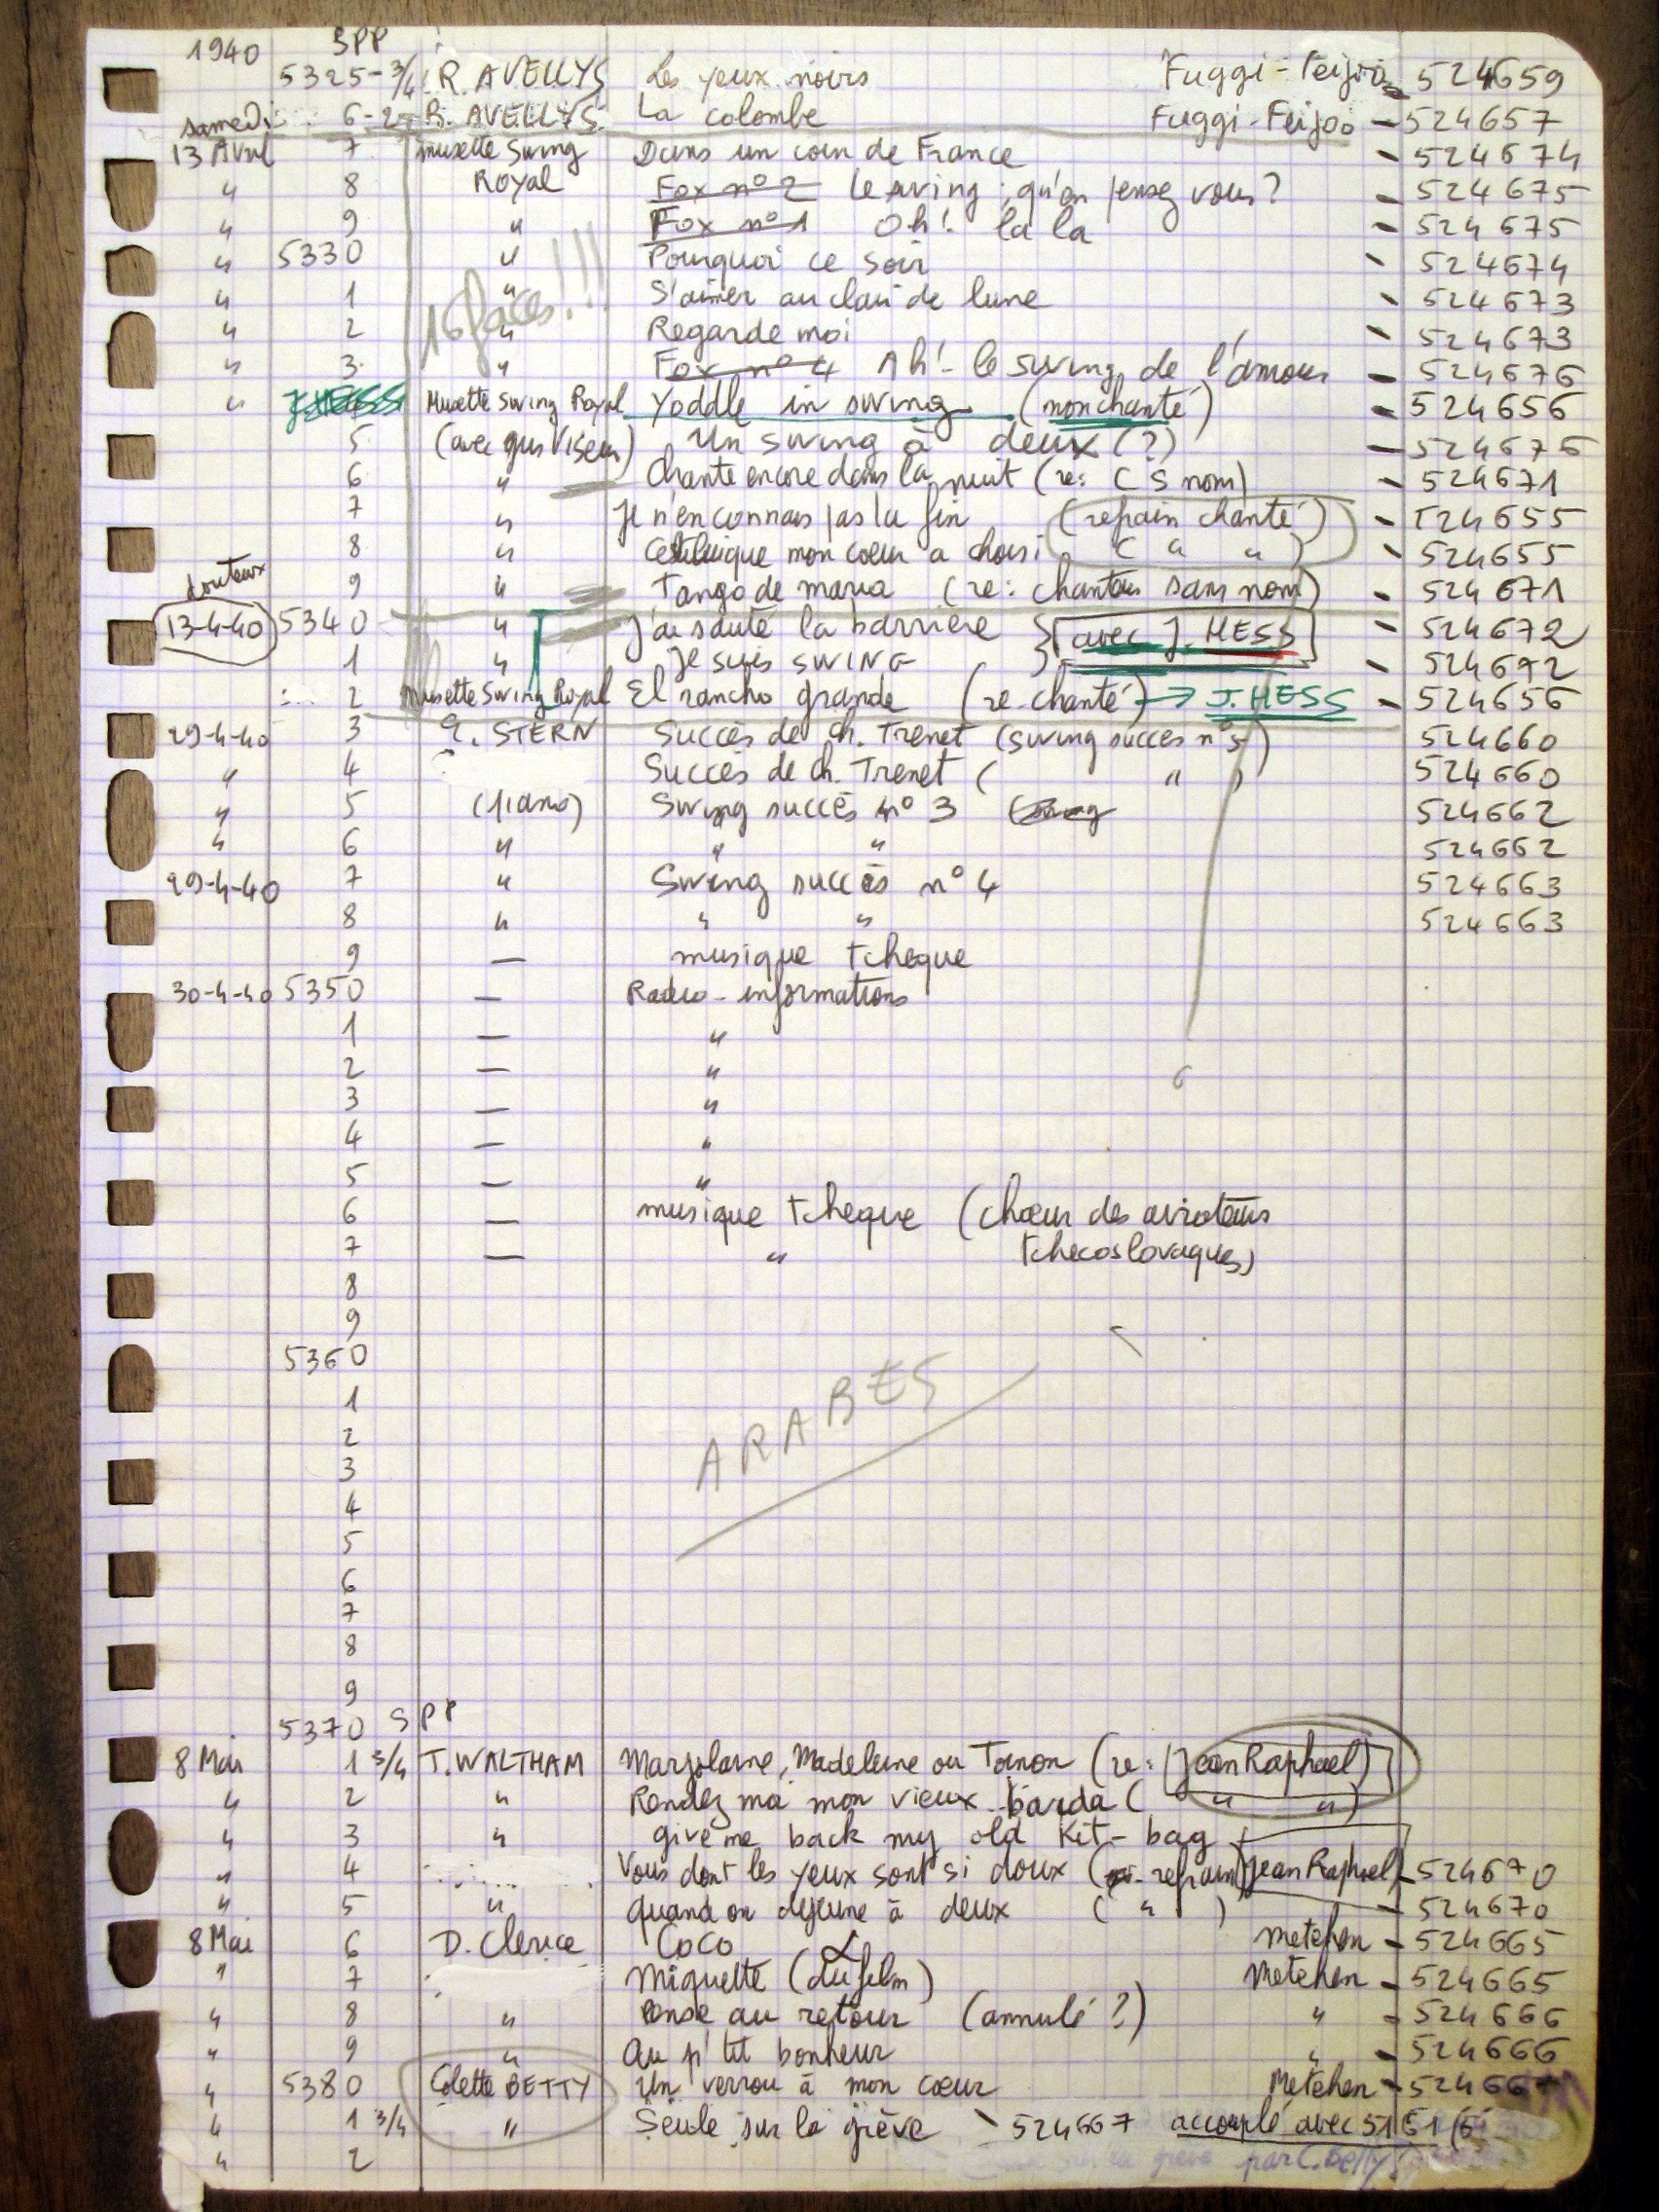 1940 SPP
5325-3/4 R. AVELLYS Les yeux noirs Fuggi-Feijoo 524659
samedi 6-2 R. AVELLYS La colombe Fuggi-Feijoo - 524657
13 Avril 7 musette Swing Dans un coin de France - 524674
" 8 ROYAL Fox n° 2 Le swing, qu'en pensez vous? - 524675
" 9 " Fox n° 1 Oh! la la - 524675
" 5330 " Pourquoi ce soir - 524674
" 1 " S'aimer au clair de lune - 524673
16 faces!!!
" 2 " Regarde moi - 524673
" 3 " Fox n° 4 Ah! le swing de l'amour - 524676
" J. HESS Musette Swing Royal Yoddle in swing (non chanté) - 524656
5 (avec Gus Viseur) Un swing à deux (?) - 524676
6 " Chante encore dans la nuit (re: C S nom) - 524671
7 " Je n'en connais pas la fin (refrain chanté) - 524655
8 " C'est lui que mon cœur a choisi ( " " ) - 524655
douteux 9 " Tango de maria (re: chanteur sans nom) - 524671
13-4-40 5340 " J'ai sauté la barrière } [avec J. HESS] - 524672
1 " Je suis SWING } - 524672
2 Musette Swing Royal El rancho grande (re-chanté) → J. HESS - 524656
29-4-40 3 E. STERN Succès de Ch. Trenet (swing succès n° 5) 524660
" 4 Succès de Ch. Trenet ( " ) 524660
" 5 (piano) Swing succès n° 3 524662
" 6 " " " 524662
29-4-40 7 " Swing succès n° 4 524663
8 " " " 524663
9 — musique tcheque
30-4-40 5350 — Radio-informations
1 — "
2 — "
3 — "
4 — "
5 — "
6 — musique tcheque (chœur des aviateurs
7 — " tchecoslovaques)
8
9
5360
1
2
ARABES
3
4
5
6
7
8
9
5370 SPP
8 Mai 1 3/4 T. WALTHAM Marjolaine, Madeleine ou Toinon (re: [Jean Raphael)]
" 2 " Rendez moi mon vieux barda ( " " )
" 3 " give me back my old Kit-bag
" 4 Vous dont les yeux sont si doux (refrain) Jean Raphael - 524670
" 5 " Quand on dejeune à deux ( " ) - 524670
8 Mai 6 D. Clerice Coco metehen - 524665
" 7 Miquette (du film) Metehen - 524665
" 8 " Pense au retour (annulé ?) " - 524666
" 9 " Au p'tit bonheur " - 524666
" 5380 Colette BETTY Un verrou à mon cœur Metehen - 52466
" 1 3/4 " Seule sur la grève - 524667 accouplé avec 5161
" 2 grève par C. Betty